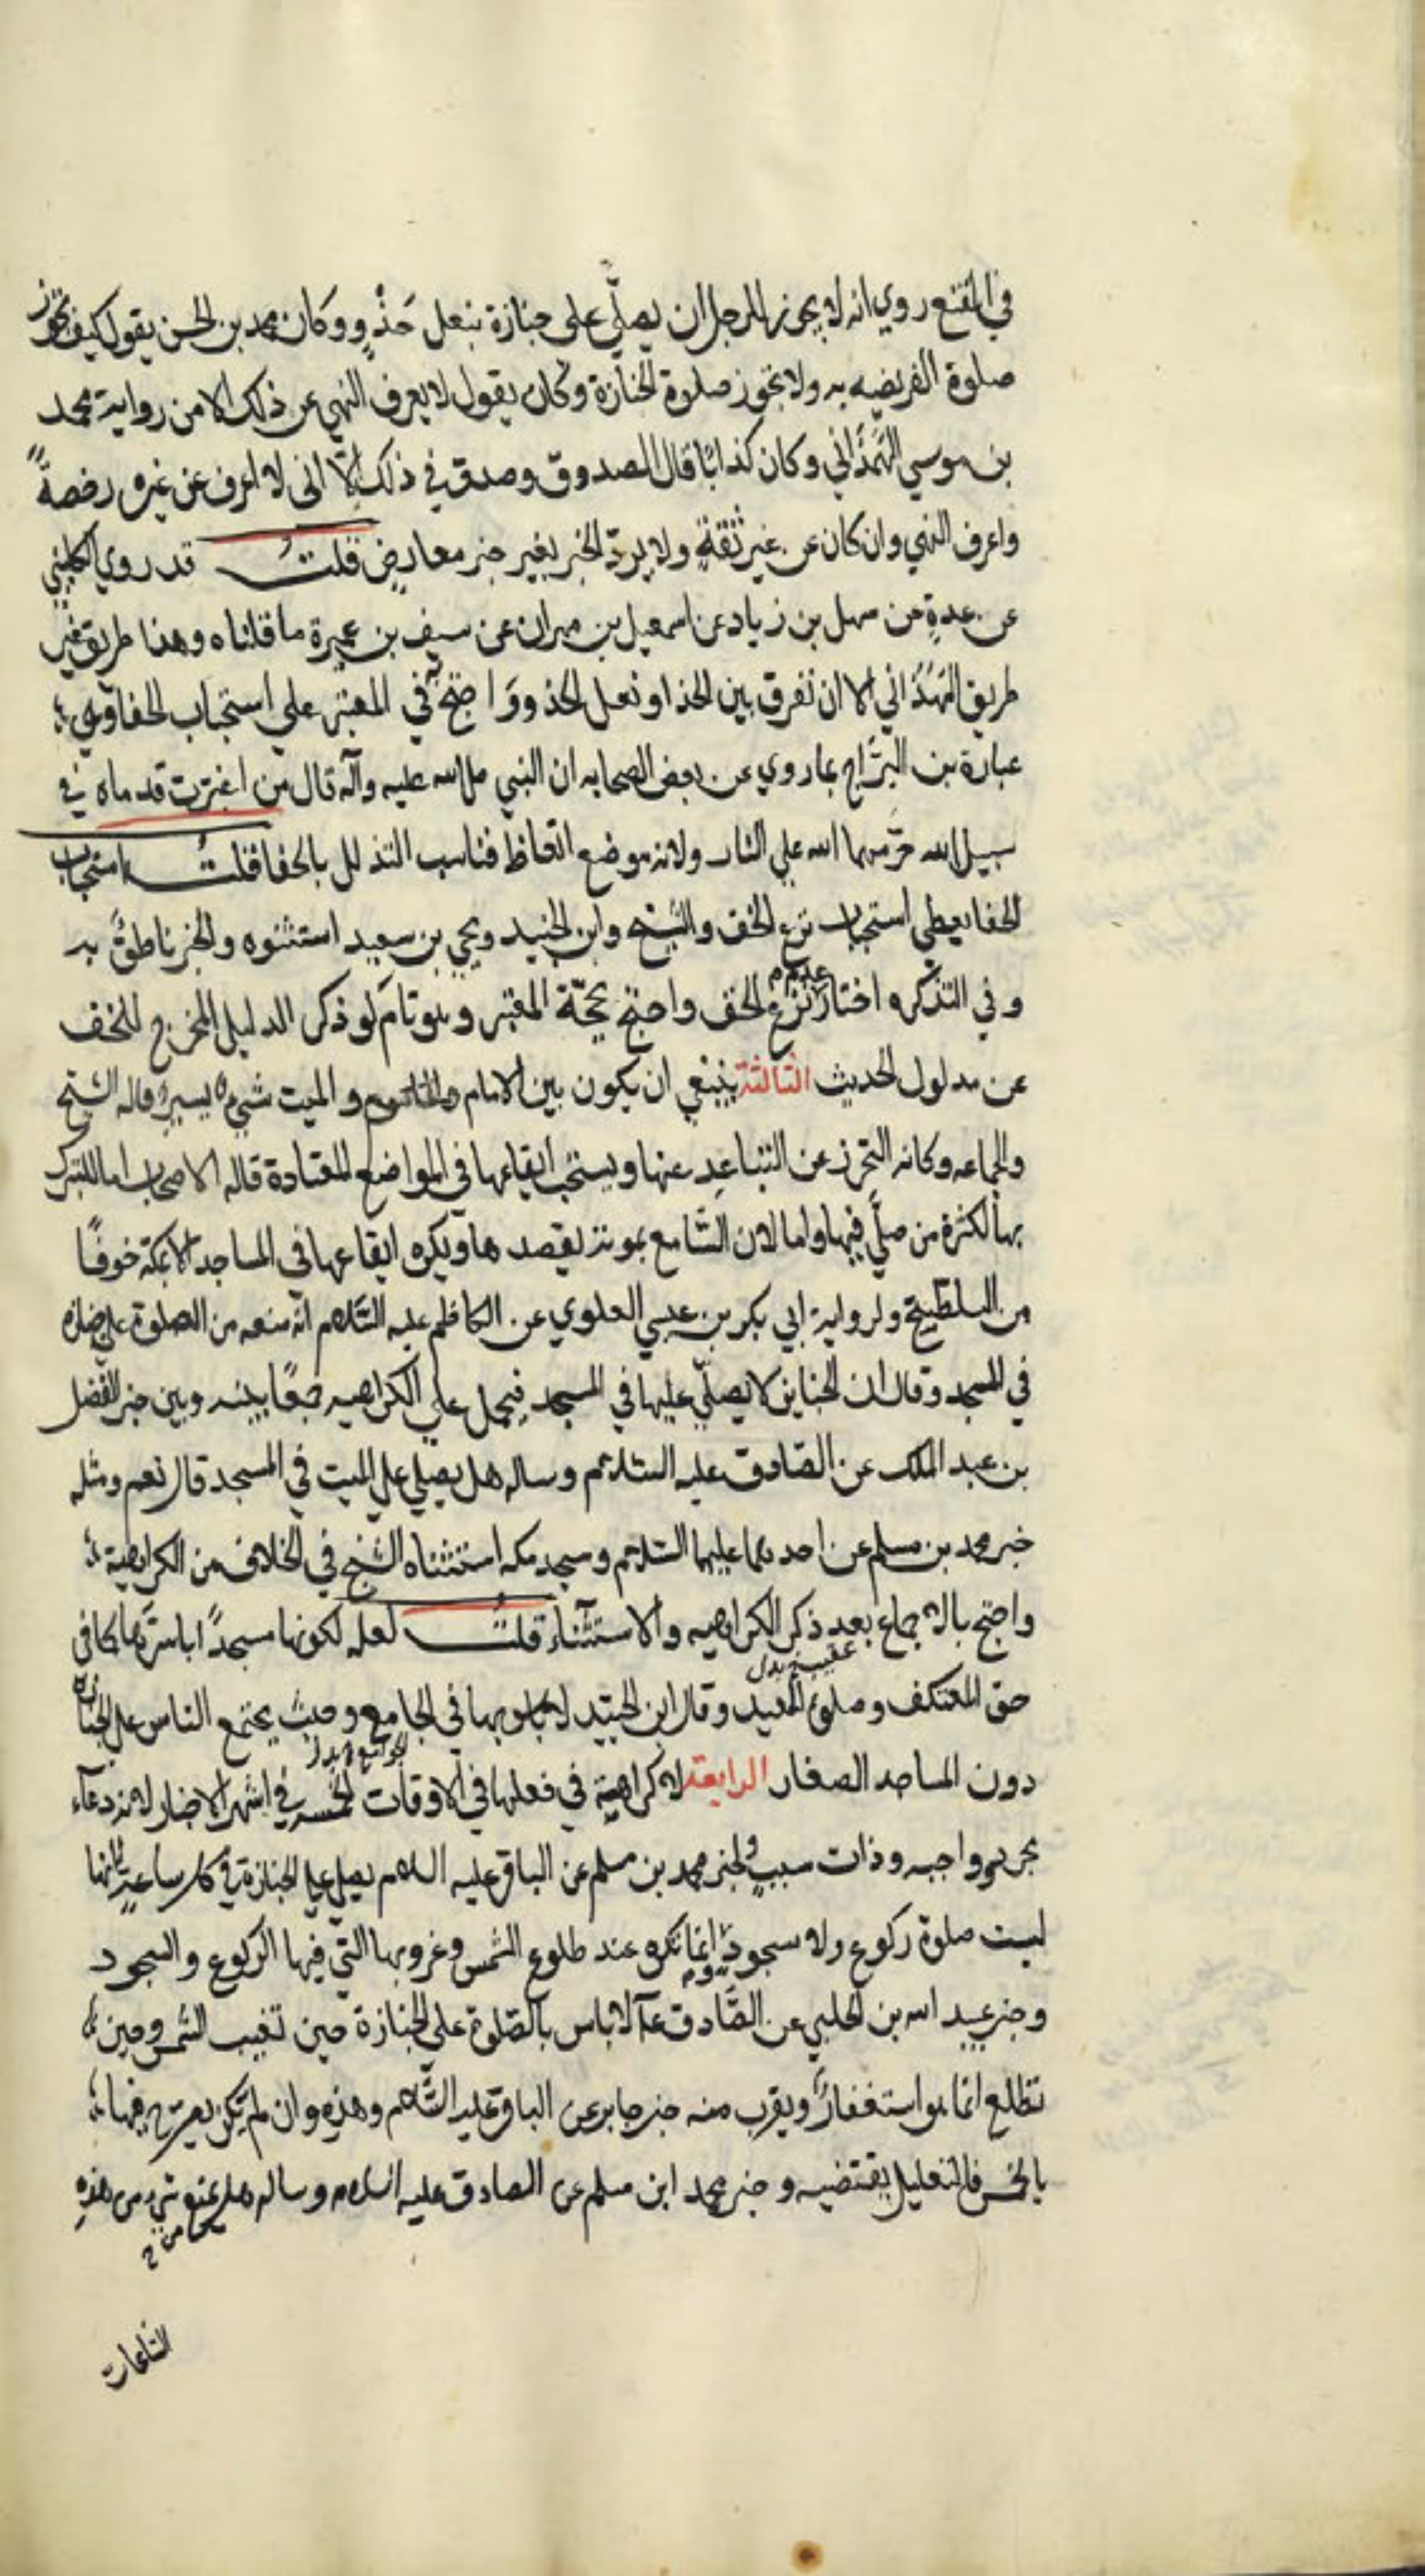 في المقنع روي انه لا يجوز للرجل ان يصلّي على جنازة بنعل حَذْوٍ وكان محمد بن الحسن يقول كيف تجوز
صلوة الفريضه به ولا تجوز صلوة الجنازة وكان يقول لا يعرف النهي عن ذلك الا من رواية محمد
بن موسي الهَمَذَاني وكان كذابًا قال الصدوق وصدق في ذلك الّا اني لا اعرف عن غيره رخصةً
واعرف النهي وان كان عن غير ثقةٍ ولا يردّ الخبر بغير خبر معارض قلتُ قد روي الكليني
عن عدةٍ عن سهل بن زياد عن اسمعيل بن مهران عن سيف بن عميرة ما قلناه وهذا طريق غير
طريق الهَمَذَاني الا ان تفرق بين الحذاء ونعل الحذو وَاحتج في المعتبر على استحباب الحفا وهي
عبارة بن البرّاج بما روي عن بعض الصحابه ان النبي صلى الله عليه وآله قال من اغبرّت قدماه في
سبيل الله حرّمهما الله علي النار ولانه موضع اتعاظ فناسب التذلل بالحفا قلتُ استحباب
الحفا يعطي استحباب نزع الخف والشيخ وابن الجنيد ويحيى بن سعيد استثنوه والخبر ناطقٌ به
وفي التذكره اختار عدم نزع الخف واحتج بحجّة المعتبر وهو تام لو ذكر الدليل المخرج للخف
عن مدلول الحديث الثالثة ينبغي ان يكون بين الامام والميت شيءٌ يسيرٌ قاله الشيخ
والجماعه وكانه التحرز عن التباعد عنها ويستحب ايقاعها في المواضع المعتادة قاله الاصحاب اما للتبرك
بها لكثرة من صلّي فيها واما لان السّامع بموته يقصدها ويكره ايقاعها في المساجد الا بمكة خوفًا
من التلطيخ ولرواية ابي بكر بن عيسي العلوي عن الكاظم عليه السّلام انه منعه من الصلوة علي جنازه
في المسجد وقال ان الجنايز لا يصلّي عليها في المسجد فيحمل علي الكراهيه جمعًا بينه وبين خبر الفضل
بن عبد الملك عن الصّادق عليه السّلام وساله هل يصلي علي الميت في المسجد قال نعم ومثله
خبر محمد بن مسلم عن احدهما عليهما السّلام ومسجد مكه استثناه الشيخ في الخلاف من الكراهية
واحتج بالاجماع بعد ذكر الكراهيه والاستثناء قلتُ لعله لكونها مسجدًا باسرها كما في
حق المعتكف وصلوة العيد وقال ابن الجنيد لا باس بها في الجامع وحيث يجتمع الناس علي الجنازه
دون المساجد الصغار الرابعة لا كراهية في فعلها في الاوقات الخمسة في اشهر الاخبار لانه دعاء
واجبه وذات سببٍ ولخبر محمد بن مسلم عن الباقر عليه السلام يصلي علي الجنازة في كل ساعةٍ انها
ليست صلوة ركوع ولا سجود انما تكره عند طلوع الشمس وغروبها التي فيها الركوع والسجود
وخبر عبيد الله بن الحلبي عن الصَّادق ع لا باس بالصّلوة على الجنازة حين تغيب الشمس وحين
تطلع انما هو استغفارٌ ويقرب منه خبر جابر عن الباقر عليه السّلام وهذه وان لم يكن يصرّح فيها
بالخمس فالتعليل يقتضيه وخبر محمد ابن مسلم عن الصادق عليه السلام وساله هل يمنع شيء من هذه
الساعات